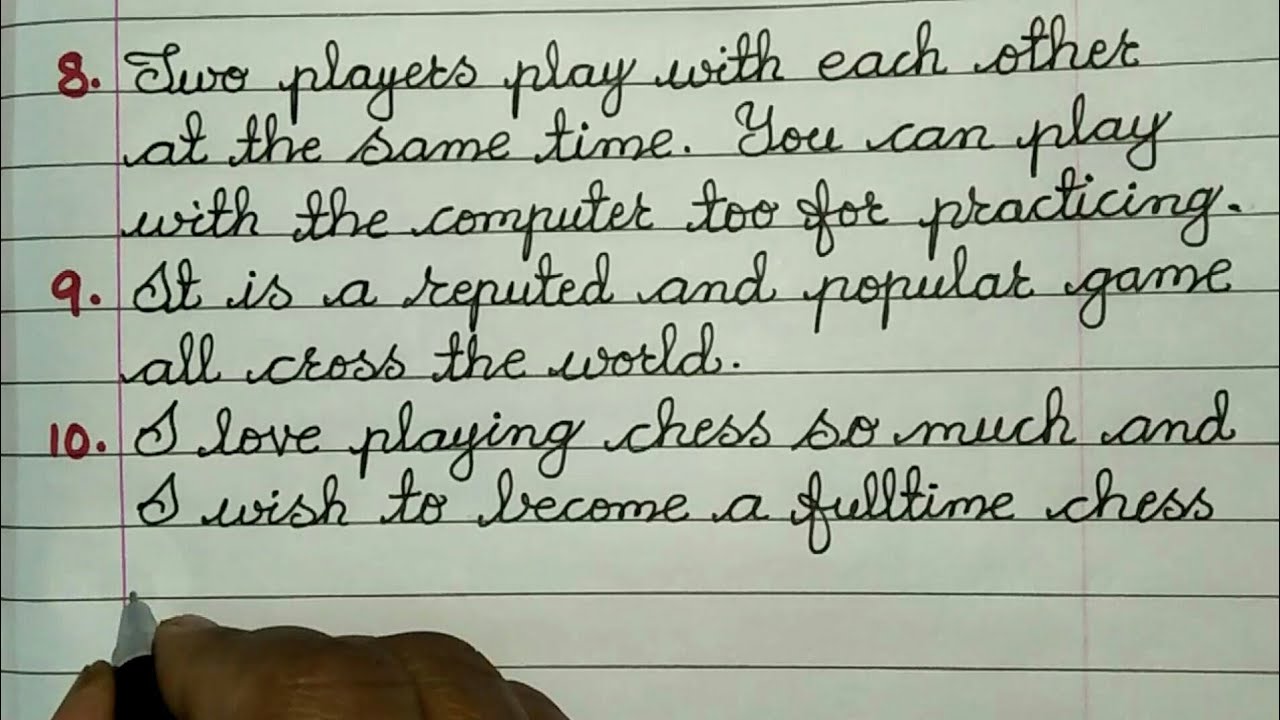 8. Two players play with each other
at the same time. You can play
with the computer too for practicing.
9. It is a reputed and popular game
all cross the world.
10. I love playing chess so much and
I wish to become a fulltime chess